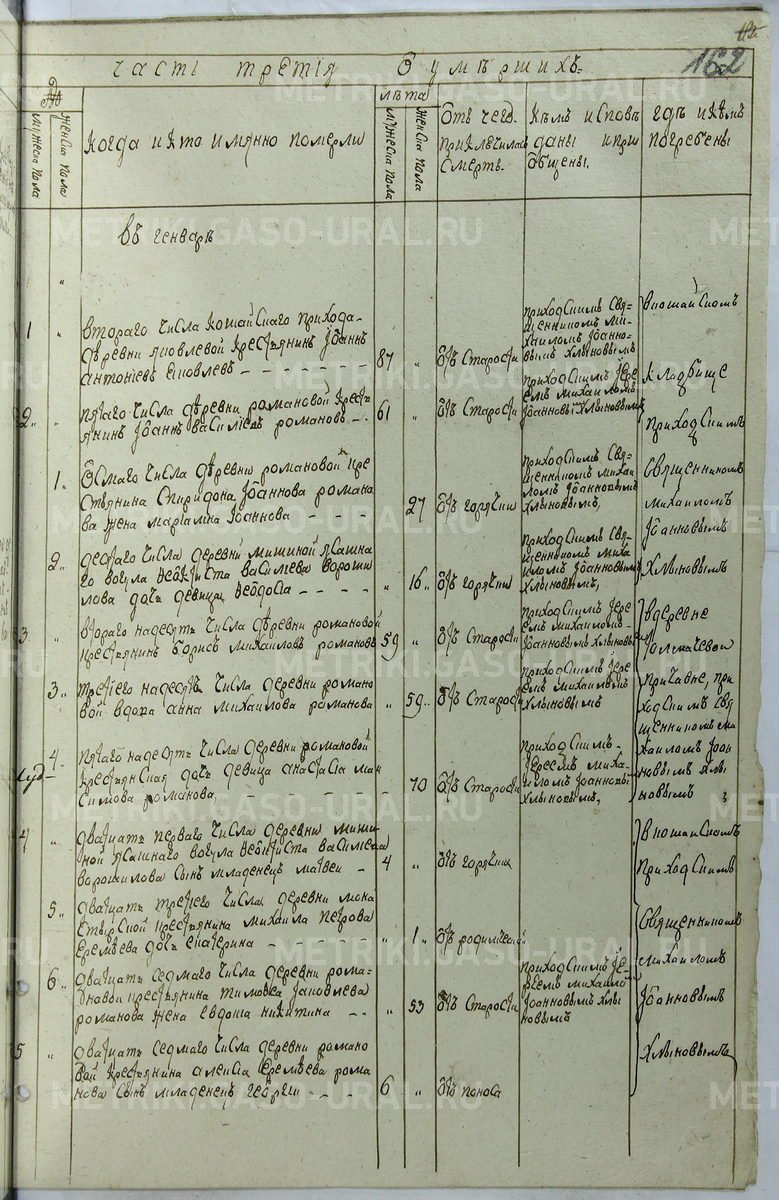 162
часть третія о умѣршихъ.
№
мужеска пола
женска пола
когда и кто имянно померли
лѣта
мужеска пола
женска пола
отъ чего
приключилась
смерть.
кѣмъ исповѣ
даны и при
общены.
гдѣ и кѣмъ
погребены
въ генварѣ
1
втораго числа кошайскаго прихода
деревни яковлевой крестьянинъ Іоаннъ
антоніевъ яковлевъ
87
отъ старости
приходскимъ свя=
щенникомъ ми=
хаиломъ Іоанно=
вымъ хлыновымъ
в кошайскомъ
2
пятаго числа деревни романовой крест=
янинъ Іоаннъ василіевъ романовъ
61
отъ старости
приходскимъ Іере
емъ михаиломъ
Іоанновымъ хлыновымъ
кладбище
приходскимъ
1
осмаго числа деревни романовой кре
стьянина спиридона Іоаннова романо
ва жена маріамна Іоаннова
27
отъ горячки
приходскимъ свя=
щенникомъ михаи
ломъ Іоанновымъ
хлыновымъ,
священникомъ
михаиломъ
Іоанновымъ
2
десятаго числа деревни мишиной ясашна
го вогула Ѳеоктиста василева вороши
лова дочь девица Ѳеодосіа
16
отъ горячки
приходскимъ свя=
щенникомъ миха
иломъ Іоанновымъ
хлыновымъ,
хлыновымъ
3
втораго надесять числа деревни романовой
крестьянинъ борисъ михаиловъ романовъ
59
отъ старости
приходскимъ Іере
емъ михаиломъ
Іоанновымъ хлыновымъ
в деревне
3
третяго надесять числа деревни романо
вой вдова анна михаилова романова
59
отъ старости
приходскимъ Іере
емъ михаиломъ
хлыновымъ
при
ходскимъ свя
щенникомъ ми
хаиломъ Іоан
новымъ хлы
новымъ
4
пятаго надесять числа деревни романовой
крестьянская дочь девица анастасіа мак
симова романова,
70
отъ старости
приходскимъ
Іереемъ миха=
иломъ Іоанновы
хлыновымъ,
4
дватцать перваго числа деревни миши
ной ясашнаго вогула Ѳеоктиста василева
ворошилова сынъ младенецъ матвеи
4
отъ горячки
в кошайскомъ
приходскимъ
5
дватцать третяго числа деревни мона
стырской крестьянина михаила петрова
еремѣева дочь екатерина
1
отъ родимческой
священникомъ
6
дватцать седмаго числа деревни рома=
новой крестьянина тимоѳеа яковлева
романова жена евдокіа никитина
53
отъ старости
приходскимъ Іе
реемъ михаило
Іоанновымъ хлы
новымъ
михаиломъ
Іоанновымъ
5
дватцать седмаго числа деревни романо
вой крестьянина алексіа еремѣева рома
нова сынъ младенецъ георгіи
6
отъ поноса
хлыновымъ
METRIKI.GASO-URAL.RU